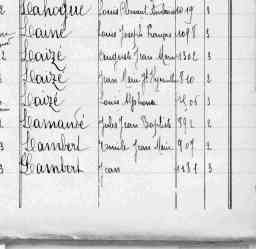 2 Lahogue Louis 19 2
Lainé Louis Joseph François 1098 3
2 Laizé Auguste Jean Marie 1302 3
Laizé Jean Marie 810 2
Laizé Louis Alphonse 3
2 Lamandé Jules Jean Baptiste 892 2
3 Lambert Emile Jean Marie 907 2
3 Lambert Jean 1187 3